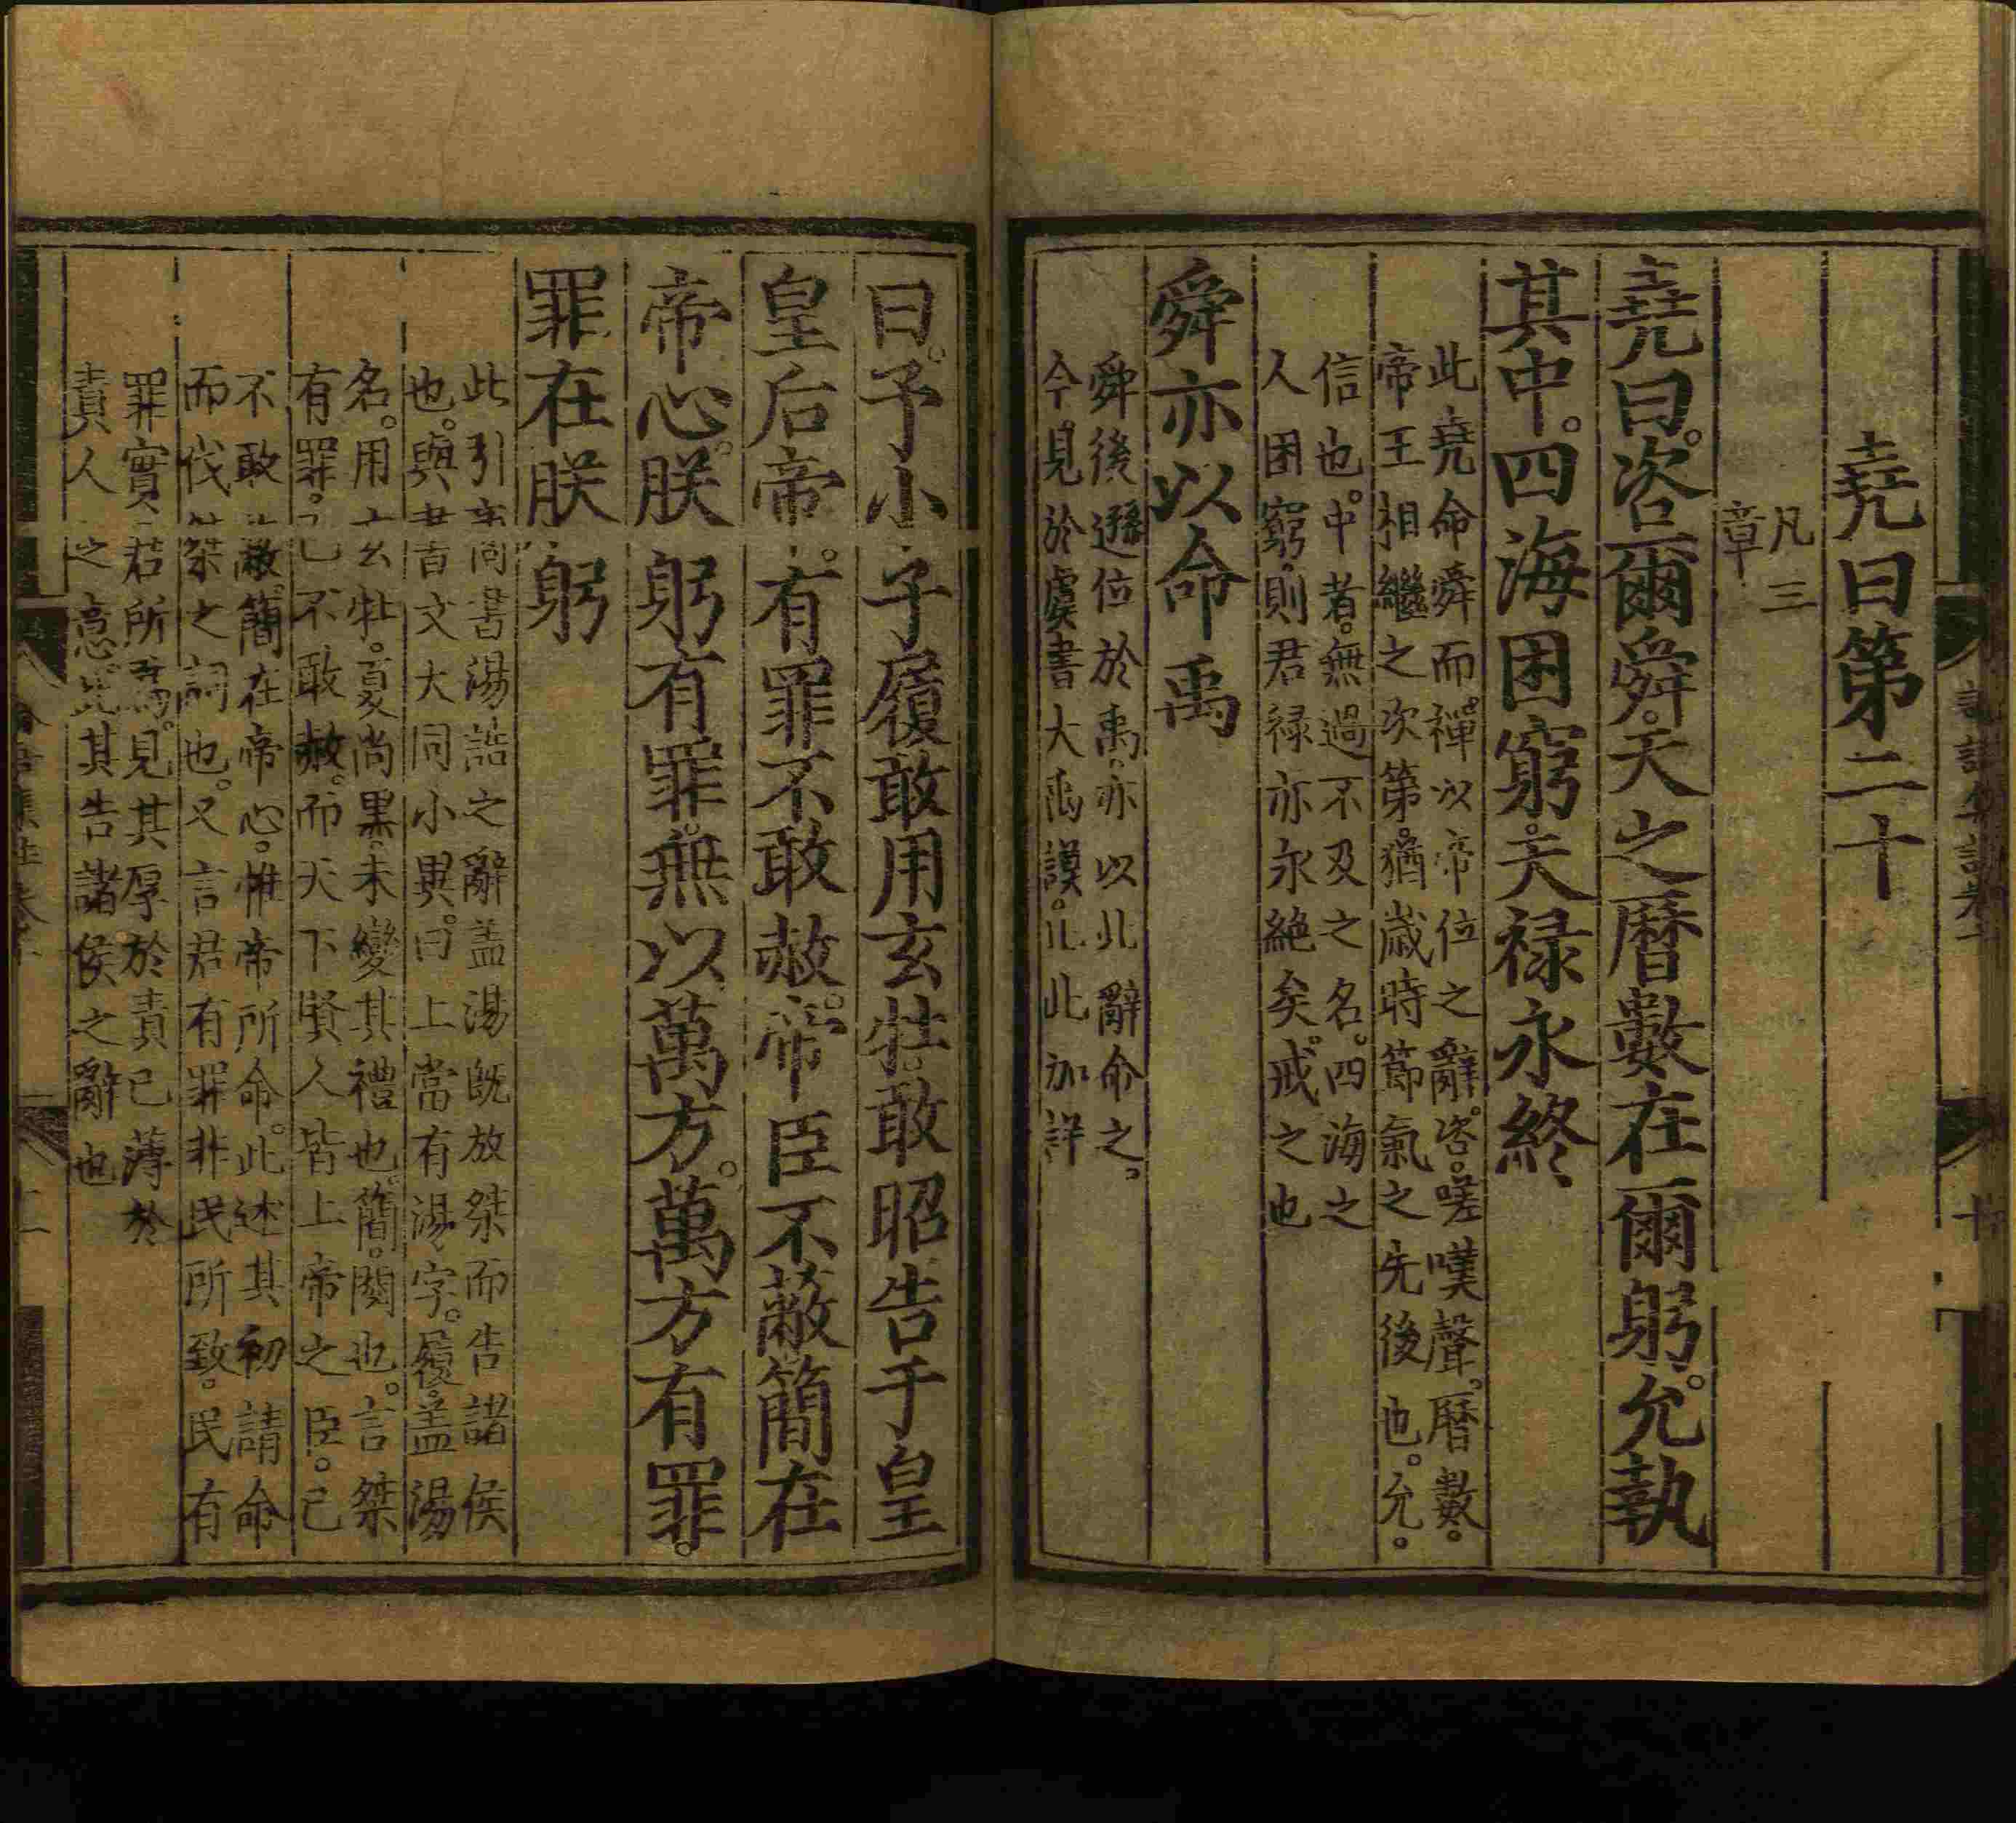 堯曰第二十
凡三
章
堯曰。咨爾舜。天之曆數在爾躬。允執
其中。四海困窮。天祿永終
此堯命舜而禪以帝位之辭。咨。嗟嘆聲。曆數。
帝王相繼之次第。猶歲時節氣之先後也。允。
信也。中者。無過不及之名。四海之
人困窮。則君祿亦永絕矣。戒之也
舜亦以命禹
舜後遜位於禹。亦以此辭命之。
今見於虞書大禹謨。比此加詳
曰。予小子履敢用玄牡。敢昭告于皇
皇后帝。有罪不敢赦。帝臣不蔽簡在
帝心。朕躬有罪。無以萬方。萬方有罪。
罪在朕躬
此引商書湯誥之辭蓋湯既放桀而告諸侯
也。與書文大同小異。曰上當有湯字。履。蓋湯
名。用玄牡。夏尚黑。未變其禮也。簡。閱也。言桀
有罪。己不敢赦。而天下賢人皆上帝之臣。己
不敢蔽。簡在帝心。惟帝所命。此述其初請命
而伐桀之詞也。又言君有罪非民所致。民有
罪實君所為。見其厚於責己薄於
責人之意。此其告諸侯之辭也